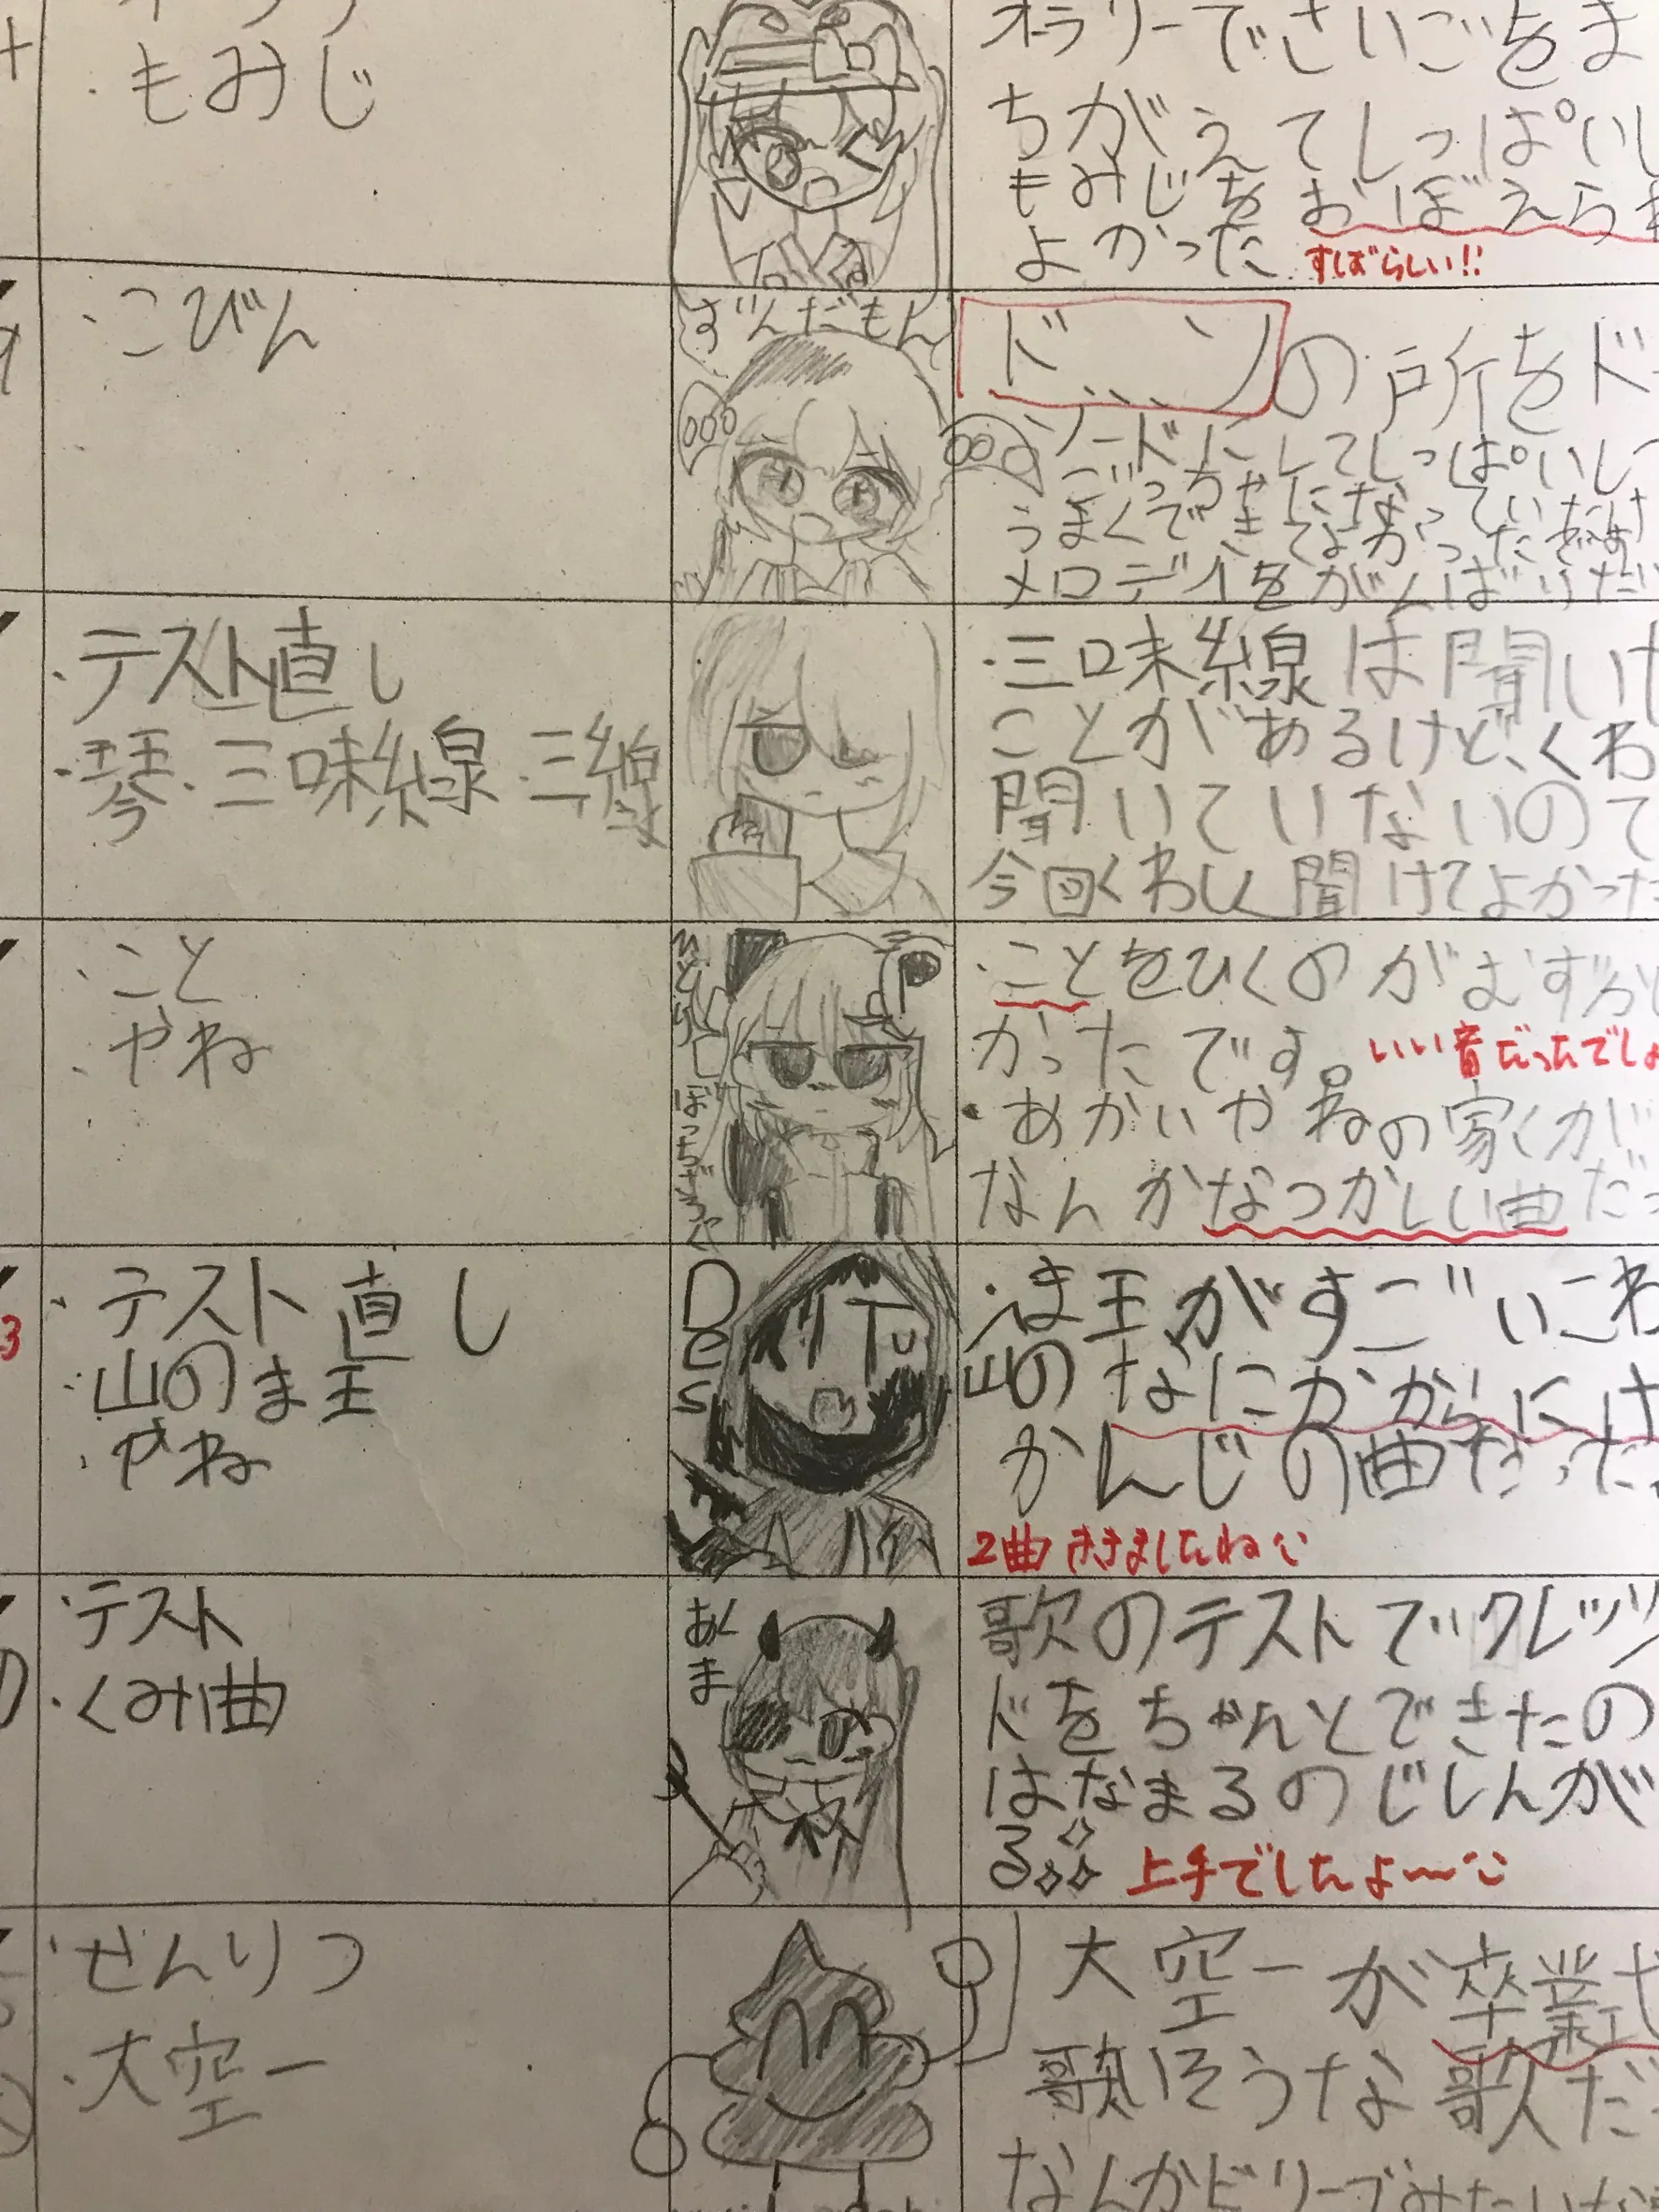 ・もみじ
オラリーでさいごをま
ちがえてしっぱいし
もみじをおぼえられ
よかった
すばらしい!!
・こびん
ずんだもん
ド、、、、ソの所をド
ソードにしてしっぱいし
ごっちゃになっていたけ
うまくできてよかったです
メロディをがんばりたい
・テスト直し
・琴・三味線・三線
・三味線は聞いた
ことがあるけど、くわ
聞いていないので
今回くわしく聞けてよかった
・こと
・やね
ひとり
ぼっちざろっく
・ことをひくのがむずかし
かったです。
いい音だったでしょ
・あかいやねの家くが
なんかなつかしい曲だっ
3
・テスト直し
・山のま王
・やね
Des
・ま王がすごいこわ
山のなにかからにげ
かんじの曲だった
2曲ききましたね
・テスト
・くみ曲
あくま
歌のテストでクレッシ
ドをちゃんとできたの
はなまるのじしんが
る
上手でしたよ〜
・せんりつ
・大空一
大空一が卒業式
歌いそうな歌だ
なんかビリーブみたいな